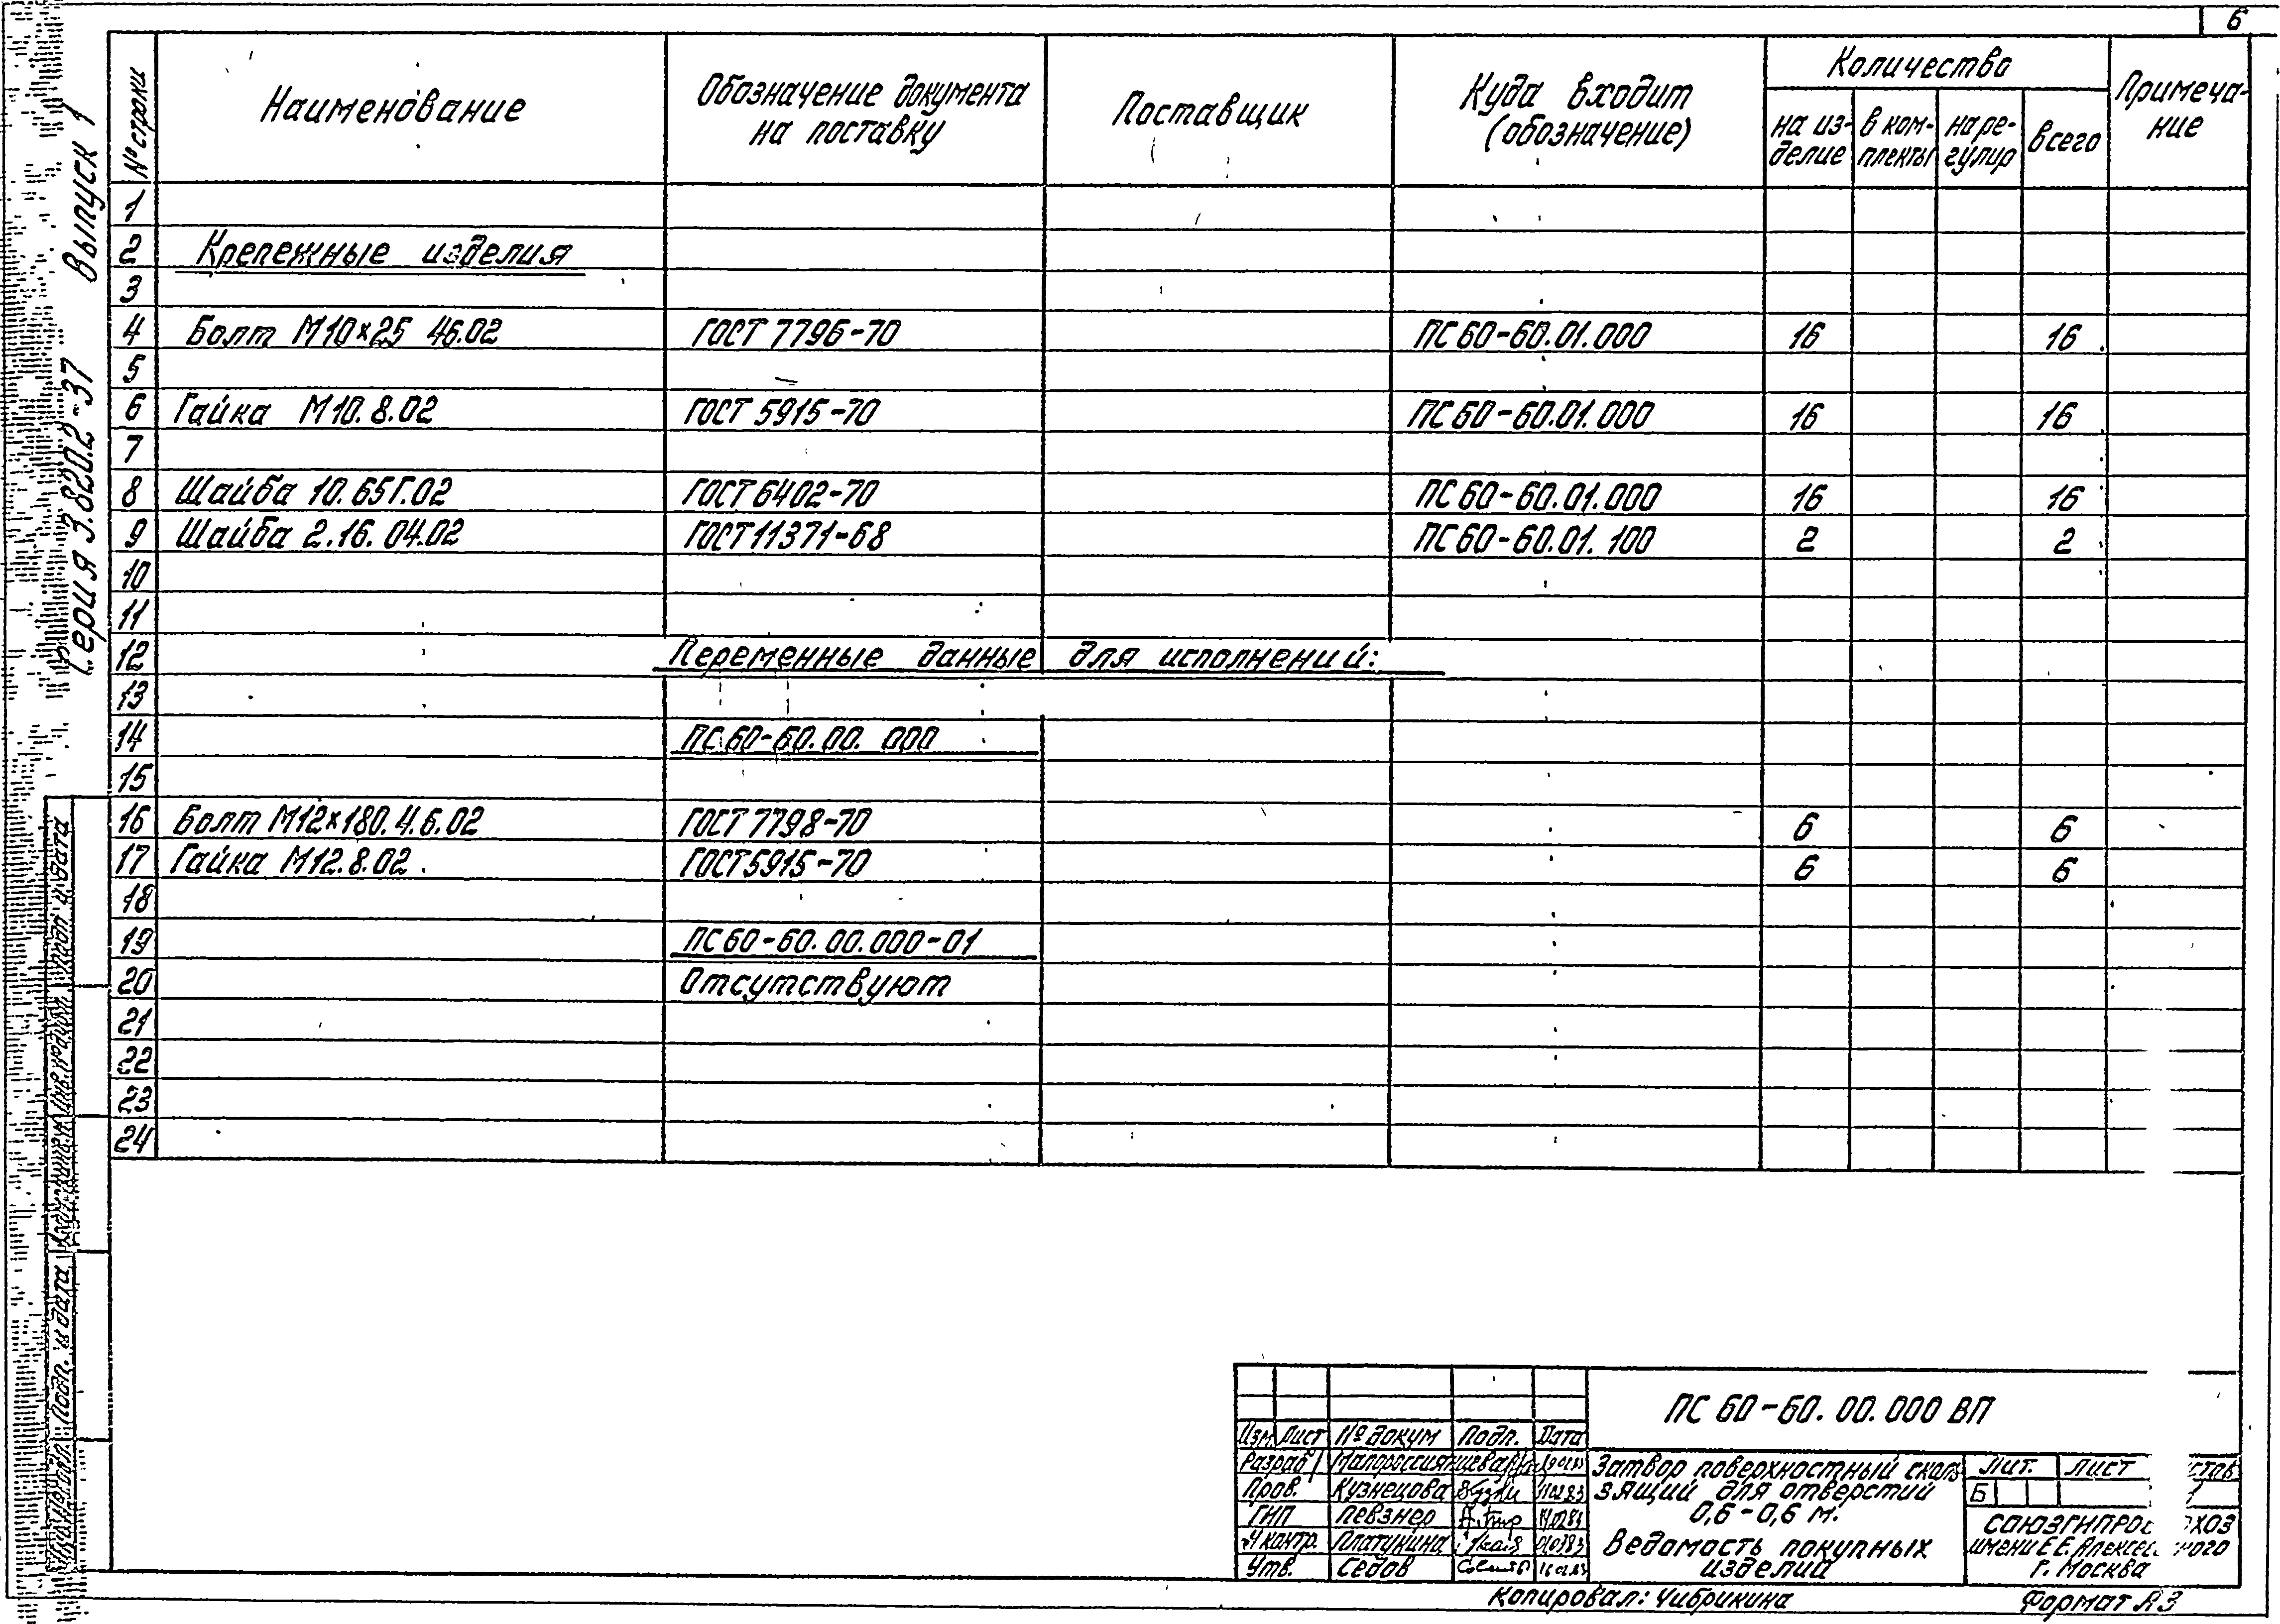 6
Серия 3.820.2-37 Выпуск 1
№ строки
Наименование
Обозначение документа
на поставку
Поставщик
Куда входит
(обозначение)
Количество
на из-
делие
в ком-
плекты
на ре-
гулир
всего
Примеча-
ние
1
2 Крепежные изделия
3
4 Болт М10×25 46.02 ГОСТ 7796-70 ПС 60-60.01.000 16 16
5
6 Гайка М10.8.02 ГОСТ 5915-70 ПС 60-60.01.000 16 16
7
8 Шайба 10.65Г.02 ГОСТ 6402-70 ПС 60-60.01.000 16 16
9 Шайба 2.16.04.02 ГОСТ 11371-68 ПС 60-60.01.100 2 2
10
11
12 Переменные данные для исполнений:
13
14 ПС 60-60.00.000
15
16 Болт М12×180.4.6.02 ГОСТ 7798-70 6 6
17 Гайка М12.8.02 ГОСТ 5915-70 6 6
18
19 ПС 60-60.00.000-01
20 Отсутствуют
21
22
23
24
Подп. и дата
Подп. и дата
ПС 60-60.00.000 ВП
Изм. Лист № докум Подп. Дата
Разраб
Пров. Кузнецова
ГИП Певзнер
Н контр. Платунина
Утв. Седов
Затвор поверхностный сколь
зящий для отверстий
0,6-0,6 м.
Ведомость покупных
изделий
Лит. Лист
Б
имени Е.Е.
г. Москва
Копировал: Чибрикина
Формат А3